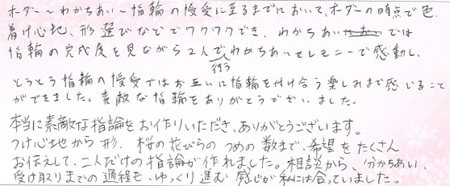 オーダー〜わかちあい〜指輪の授受に至るまでにおいて、オーダーの時点で色
着け心地、形選びなどでワクワクでき、わかちあいでは
指輪の完成度を見ながら2人で行うわかちあいセレモニーで感動し、
とうとう指輪の授受ではお互いに指輪を付け合う楽しみまで感じること
ができました。素敵な指輪をありがとうございました。
本当に素敵な指論をお作りいただき、ありがとうございます。
つけ心地から形、桜の花びらのつめの数まで、希望をたくさん
お伝えして、二人だけの指論が作れました。相談から、分かちあい、
受け取りまでの過程も、ゆっくり進む感じが私には合っていました。